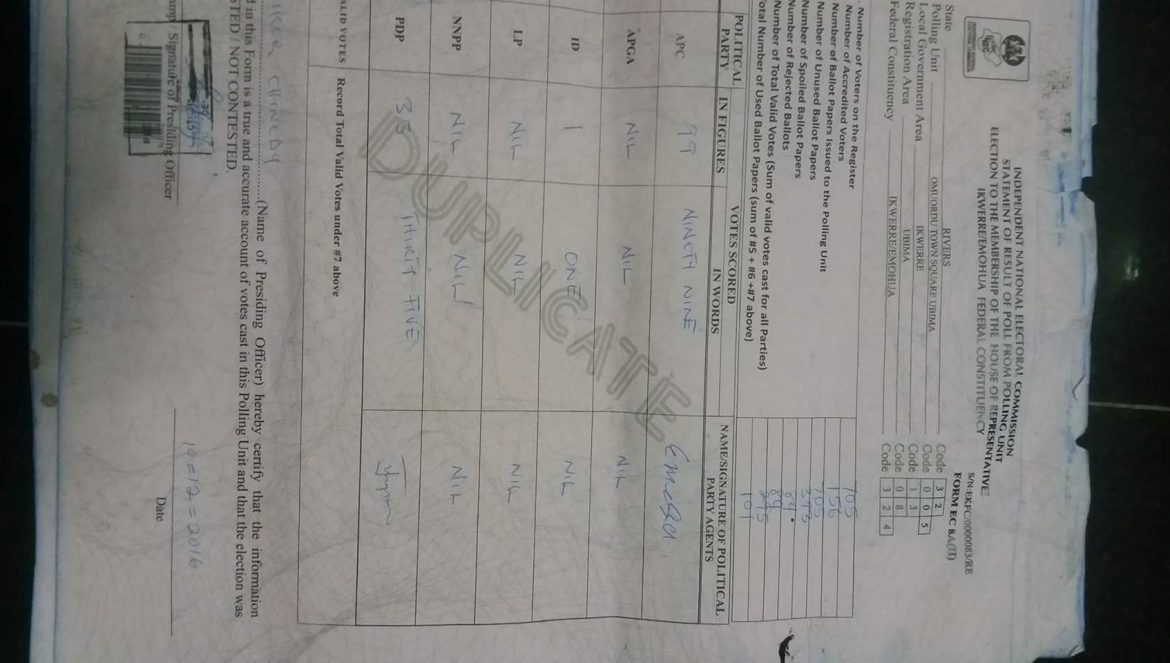 INDEPENDENT NATIONAL ELECTORAL COMMISSION
STATEMENT OF RESULT OF POLL FROM POLLING UNIT
ELECTION TO THE MEMBERSHIP OF THE HOUSE OF REPRESENTATIVE
IKWERRE/EMOHUA FEDERAL CONSTITUENCY
S/N:EKFC/0000083/RE
FORM EC 8A(II)
State RIVERS Code 3 2
Polling Unit OMUORDU TOWN SQUARE UBIMA Code 0 0 5
Local Government Area IKWERRE Code 1 3
Registration Area UBIMA Code 0 8
Federal Constituency IKWERRE/EMOHUA Code 3 2 4
Number of Voters on the Register 705
Number of Accredited Voters 156
Number of Ballot Papers Issued to the Polling Unit 705
Number of Unused Ballot Papers
Number of Spoiled Ballot Papers
Number of Rejected Ballots
Number of Total Valid Votes (Sum of valid votes cast for all Parties)
Total Number of Used Ballot Papers (sum of #5 + #6 +#7 above)
POLITICAL PARTY
VOTES SCORED
IN FIGURES
IN WORDS
NAME/SIGNATURE OF POLITICAL PARTY AGENTS
APC 99 NINETY NINE Emeka
APGA NIL NIL NIL
ID 1 ONE NIL
LP NIL NIL NIL
NNPP NIL NIL NIL
PDP 35 THIRTY FIVE
DUPLICATE
VALID VOTES Record Total Valid Votes under #7 above
CHINEDY (Name of Presiding Officer) hereby certify that the information
d in this Form is a true and accurate account of votes cast in this Polling Unit and that the election was
STED / NOT CONTESTED.
Signature of Presiding Officer
10=12=2016
Date